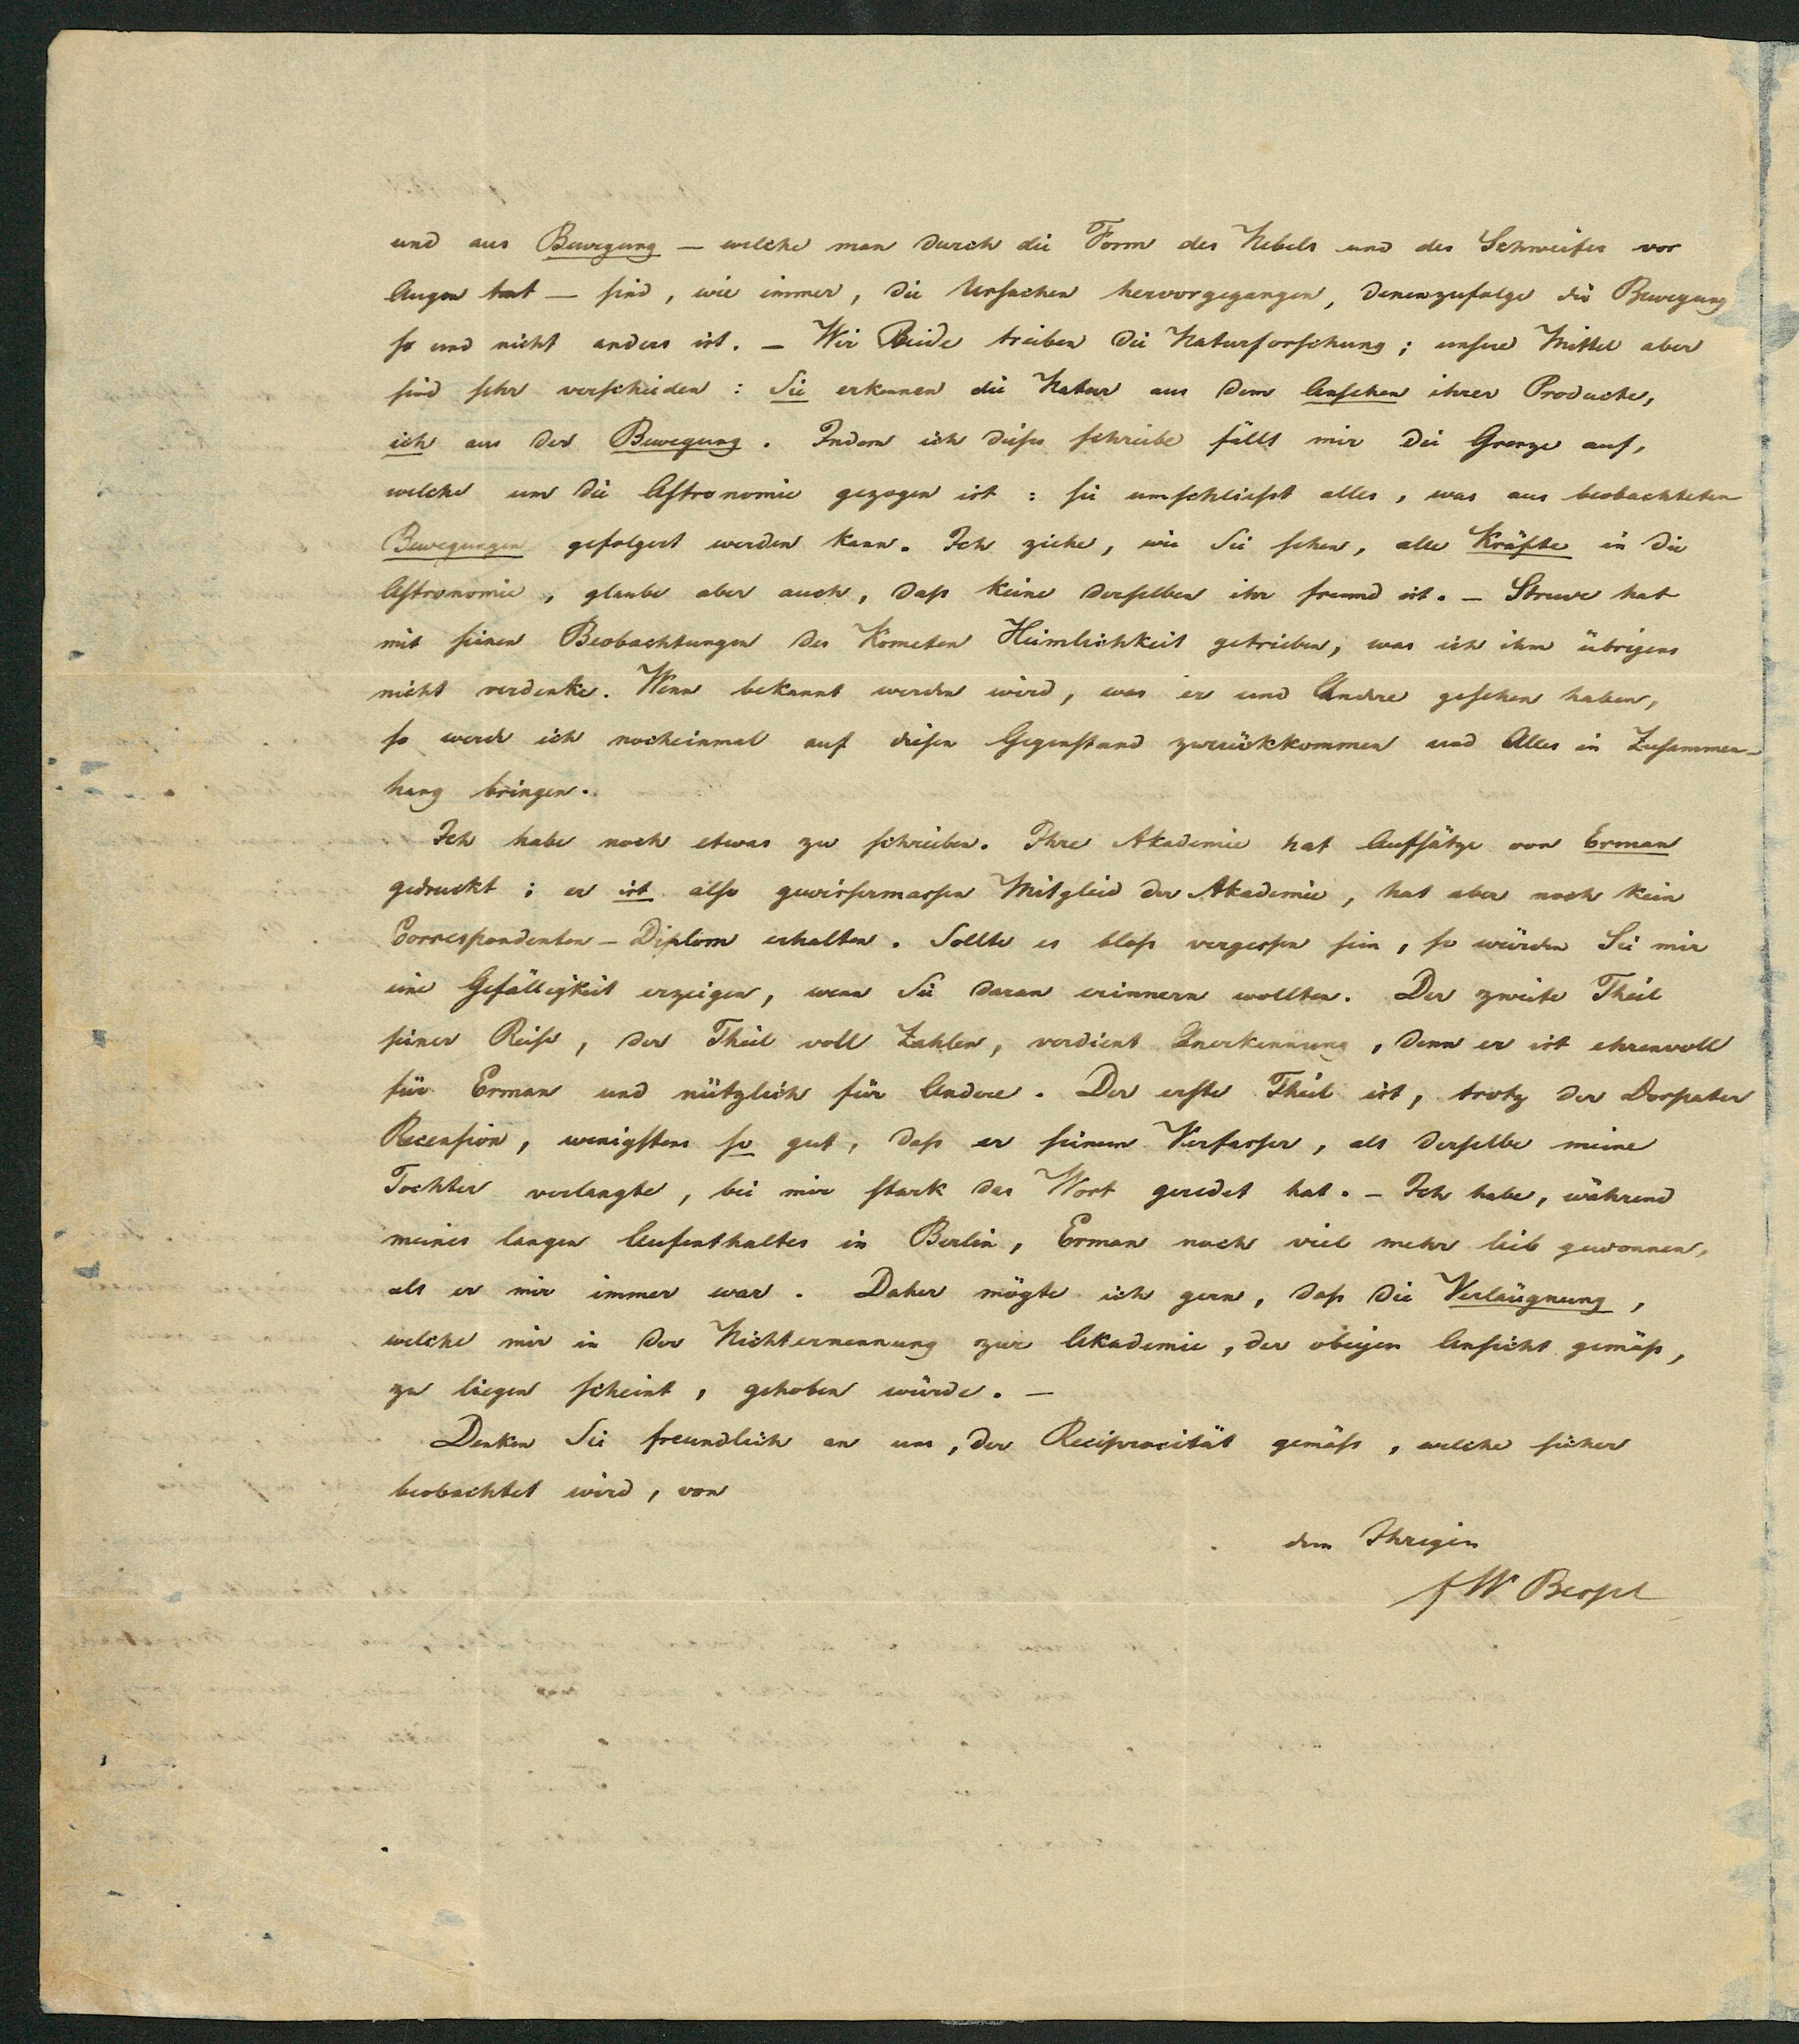 und aus Bewegung — welche man durch die Form des Nebels und des Schweifes vor
Augen hat — sind, wie immer, die Ursachen hervorgegangen, denenzufolge die Bewegung
so und nicht anders ist. — Wir Beide treiben die Naturforschung; unsere Mittel aber
sind sehr verschieden: Sie erkennen die Natur aus dem Ansehen ihrer Producte,
ich aus der Bewegung. Indem ich dieses schreibe fällt mir die Grenze auf,
welche um die Astronomie gezogen ist: sie umschliesst alles, was aus beobachteten
Bewegungen gefolgert werden kann. Ich ziehe, wie Sie sehen, alle Kräfte in die
Astronomie, glaube aber auch, dass keine derselben ihr fremd ist. — Struve hat
mit seinen Beobachtungen des Kometen Heimlichkeit getrieben, was ich ihm übrigens
nicht verdenke. Wenn bekannt werden wird, was er und Andere gesehen haben,
so werde ich nocheinmal auf diesen Gegenstand zurückkommen und Alles in Zusammen-
hang bringen.
Ich habe noch etwas zu schreiben. Ihre Akademie hat Aufsätze von Erman
gedruckt; er ist also gewissermassen Mitglied der Akademie, hat aber noch kein
Correspondenten-Diplom erhalten. Sollte es bloss vergessen sein, so würden Sie mir
eine Gefälligkeit erzeigen, wenn Sie daran erinnern wollten. Der zweite Theil
seiner Reise, der Theil voll Zahlen, verdient Anerkennung, denn er ist ehrenvoll
für Erman und nützlich für Andere. Der erste Theil ist, trotz der Dorpater
Recension, wenigstens so gut, dass er seinem Verfasser, als derselbe meine
Tochter verlangte, bei mir stark das Wort geredet hat. — Ich habe, während
meines langen Aufenthaltes in Berlin, Erman noch viel mehr lieb gewonnen,
als er mir immer war. Daher mögte ich gern, dass die Verläugnung,
welche mir in der Nichternennung zur Akademie, der obigen Ansicht gemäss,
zu liegen scheint, gehoben würde. —
Denken Sie freundlich an uns, der Reciprocität gemäss, welche sicher
beobachtet wird, von
dem Ihrigen
F W Bessel